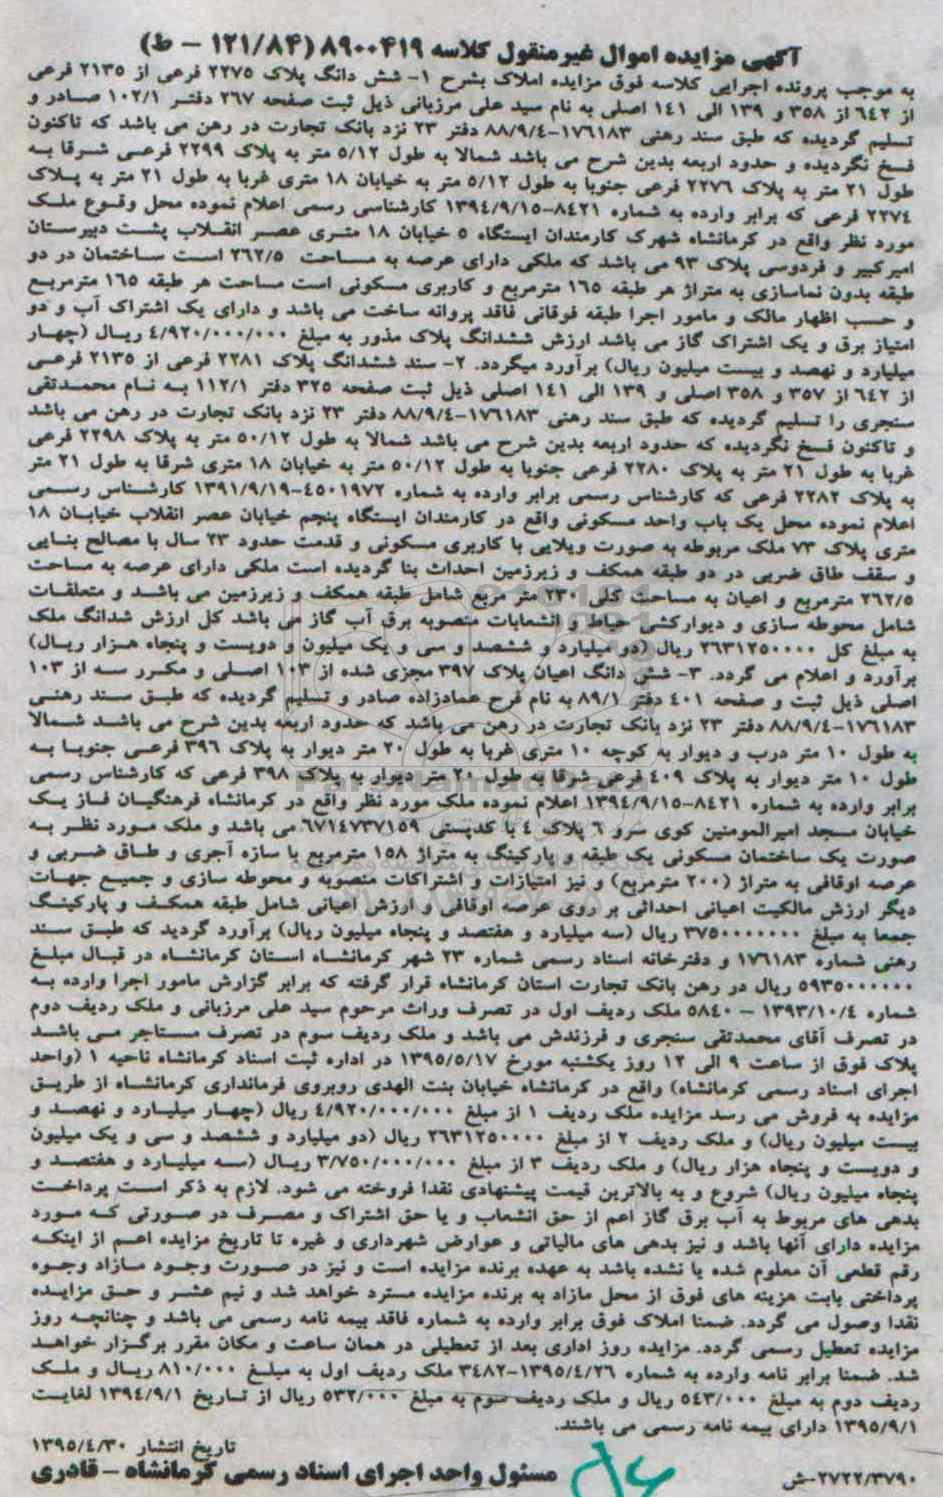 آگهی مزایده اموال غیرمنقول کلاسه ۸۹۰۰۴۱۹ (۱۲۱/۸۴ – ط)
به موجب پرونده اجرایی کلاسه فوق مزایده املاک بشرح ۱- شش دانگ پلاک ۲۲۷۵ فرعی از ۲۱۳۵ فرعی
از ۶۴۲ از ۳۵۸ و ۱۳۹ الی ۱۴۱ اصلی به نام سید علی مرزبانی ذیل ثبت صفحه ۲۶۷ دفتر ۱۰۲/۱ صادر و
تسلیم گردیده که طبق سند رهنی ۱۷۶۱۸۳-۸۸/۹/۴ دفتر ۲۳ نزد بانک تجارت در رهن می باشد که تاکنون
فسخ نگردیده و حدود اربعه بدین شرح می باشد شمالا به طول ۵/۱۲ متر به پلاک ۲۲۹۹ فرعی شرقا به
طول ۲۱ متر به پلاک ۲۲۷۶ فرعی جنوبا به طول ۵/۱۲ متر به خیابان ۱۸ متری غربا به طول ۲۱ متر به پلاک
۲۲۷۴ فرعی که برابر وارده به شماره ۸۴۲۱-۱۳۹۴/۹/۱۵ کارشناسی رسمی اعلام نموده محل وقوع ملک
مورد نظر واقع در کرمانشاه شهرک کارمندان ایستگاه ۵ خیابان ۱۸ متری عصر انقلاب پشت دبیرستان
امیرکبیر و فردوسی پلاک ۹۳ می باشد که ملکی دارای عرصه به مساحت ۲۶۲/۵ است ساختمان در دو
طبقه بدون نماسازی به متراژ هر طبقه ۱۶۵ مترمربع و کاربری مسکونی است مساحت هر طبقه ۱۶۵ مترمربع
و حسب اظهار مالک و مامور اجرا طبقه فوقانی فاقد پروانه ساخت می باشد و دارای یک اشتراک آب و دو
امتیاز برق و یک اشتراک گاز می باشد ارزش ششدانگ پلاک مذور به مبلغ ۴/۹۲۰/۰۰۰/۰۰۰ ریال (چهار
میلیارد و نهصد و بیست میلیون ریال) برآورد میگردد. ۲- سند ششدانگ پلاک ۲۲۸۱ فرعی از ۲۱۳۵ فرعی
از ۶۴۲ از ۳۵۷ و ۳۵۸ اصلی و ۱۳۹ الی ۱۴۱ اصلی ذیل ثبت صفحه ۳۲۵ دفتر ۱۱۲/۱ به نام محمدتقی
سنجری را تسلیم گردیده که طبق سند رهنی ۱۷۶۱۸۳-۸۸/۹/۴ دفتر ۲۳ نزد بانک تجارت در رهن می باشد
و تاکنون فسخ نگردیده که حدود اربعه بدین شرح می باشد شمالا به طول ۵۰/۱۲ متر به پلاک ۲۲۹۸ فرعی
غربا به طول ۲۱ متر به پلاک ۲۲۸۰ فرعی جنوبا به طول ۵۰/۱۲ متر به خیابان ۱۸ متری شرقا به طول ۲۱ متر
به پلاک ۲۲۸۲ فرعی که کارشناس رسمی برابر وارده به شماره ۴۵۰۱۹۷۲-۱۳۹۱/۹/۱۹ کارشناس رسمی
اعلام نموده محل یک باب واحد مسکونی واقع در کارمندان ایستگاه پنجم خیابان عصر انقلاب خیابان ۱۸
متری پلاک ۷۳ ملک مربوطه به صورت ویلایی با کاربری مسکونی و قدمت حدود ۲۳ سال با مصالح بنایی
و سقف طاق ضربی در دو طبقه همکف و زیرزمین احداث بنا گردیده است ملکی دارای عرصه به مساحت
۲۶۲/۵ مترمربع و اعیان به مساحت کلی ۲۳۰ متر مربع شامل طبقه همکف و زیرزمین می باشد و متعلقات
شامل محوطه سازی و دیوارکشی حیاط و انشعابات منصوبه برق آب گاز می باشد کل ارزش شدانگ ملک
به مبلغ کل ۲۶۳۱۲۵۰۰۰۰ ریال (دو میلیارد و ششصد و سی و یک میلیون و دویست و پنجاه هزار ریال)
برآورد و اعلام می گردد. ۳- شش دانگ اعیان پلاک ۳۹۷ مجزی شده از ۱۰۳ اصلی و مکرر سه از ۱۰۳
اصلی ذیل ثبت و صفحه ۴۰۱ دفتر ۸۹/۱ به نام فرح عمادزاده صادر و تسلیم گردیده که طبق سند رهنی
۱۷۶۱۸۳-۸۸/۹/۴ دفتر ۲۳ نزد بانک تجارت در رهن می باشد که حدود اربعه بدین شرح می باشد شمالا
به طول ۱۰ متر درب و دیوار به کوچه ۱۰ متری غربا به طول ۲۰ متر دیوار به پلاک ۳۹۶ فرعی جنوبا به
طول ۱۰ متر دیوار به پلاک ۴۰۹ فرعی شرقا به طول ۲۰ متر دیوار به پلاک ۳۹۸ فرعی که کارشناس رسمی
برابر وارده به شماره ۸۴۲۱-۱۳۹۴/۹/۱۵ اعلام نموده ملک مورد نظر واقع در کرمانشاه فرهنگیان فاز یک
خیابان مسجد امیرالمومنین کوی سرو ۶ پلاک ۴ با کدپستی ۶۷۱۴۷۳۷۱۵۹ می باشد و ملک مورد نظر به
صورت یک ساختمان مسکونی یک طبقه و پارکینگ به متراژ ۱۵۸ مترمربع با سازه آجری و طاق ضربی و
عرصه اوقافی به متراژ (۲۰۰ مترمربع) و نیز امتیازات و اشتراکات منصوبه و محوطه سازی و جمیع جهات
دیگر ارزش مالکیت اعیانی احداثی بر روی عرصه اوقافی و ارزش اعیانی شامل طبقه همکف و پارکینگ
جمعا به مبلغ ۳۷۵۰۰۰۰۰۰۰ ریال (سه میلیارد و هفتصد و پنجاه میلیون ریال) برآورد گردید که طبق سند
رهنی شماره ۱۷۶۱۸۳ و دفترخانه اسناد رسمی شماره ۲۳ شهر کرمانشاه استان کرمانشاه در قبال مبلغ
۵۹۳۵۰۰۰۰۰۰ ریال در رهن بانک تجارت استان کرمانشاه قرار گرفته که برابر گزارش مامور اجرا وارده به
شماره ۱۳۹۳/۱۰/۴ – ۵۸۴۰ ملک ردیف اول در تصرف وراث مرحوم سید علی مرزبانی و ملک ردیف دوم
در تصرف آقای محمدتقی سنجری و فرزندش می باشد و ملک ردیف سوم در تصرف مستاجر می باشد
پلاک فوق از ساعت ۹ الی ۱۲ روز یکشنبه مورخ ۱۳۹۵/۵/۱۷ در اداره ثبت اسناد کرمانشاه ناحیه ۱ (واحد
اجرای اسناد رسمی کرمانشاه) واقع در کرمانشاه خیابان بنت الهدی روبروی فرمانداری کرمانشاه از طریق
مزایده به فروش می رسد مزایده ملک ردیف ۱ از مبلغ ۴/۹۲۰/۰۰۰/۰۰۰ ریال (چهار میلیارد و نهصد و
بیست میلیون ریال) و ملک ردیف ۲ از مبلغ ۲۶۳۱۲۵۰۰۰۰ ریال (دو میلیارد و ششصد و سی و یک میلیون
و دویست و پنجاه هزار ریال) و ملک ردیف ۳ از مبلغ ۳/۷۵۰/۰۰۰/۰۰۰ ریال (سه میلیارد و هفتصد و
پنجاه میلیون ریال) شروع و به بالاترین قیمت پیشنهادی نقدا فروخته می شود. لازم به ذکر است پرداخت
بدهی های مربوط به آب برق گاز اعم از حق انشعاب و یا حق اشتراک و مصرف در صورتی که مورد
مزایده دارای آنها باشد و نیز بدهی های مالیاتی و عوارض شهرداری و غیره تا تاریخ مزایده اعم از اینکه
رقم قطعی آن معلوم شده یا نشده باشد به عهده برنده مزایده است و نیز در صورت وجود مازاد وجوه
پرداختی بابت هزینه های فوق از محل مازاد به برنده مزایده مسترد خواهد شد و نیم عشر و حق مزایده
نقدا وصول می گردد. ضمنا املاک فوق برابر وارده به شماره فاقد بیمه نامه رسمی می باشد و چنانچه روز
مزایده تعطیل رسمی گردد. مزایده روز اداری بعد از تعطیلی در همان ساعت و مکان مقرر برگزار خواهد
شد. ضمنا برابر نامه وارده به شماره ۱۳۹۵/۴/۲۶-۳۴۸۲ ملک ردیف اول به مبلغ ۸۱۰/۰۰۰ ریال و ملک
ردیف دوم به مبلغ ۵۴۳/۰۰۰ ریال و ملک ردیف سوم به مبلغ ۵۳۲/۰۰۰ ریال از تاریخ ۱۳۹۴/۹/۱ لغایت
۱۳۹۵/۹/۱ دارای بیمه نامه رسمی می باشند.
تاریخ انتشار ۱۳۹۵/۴/۳۰
مسئول واحد اجرای اسناد رسمی کرمانشاه – قادری
۲۷۲۲/۳۷۹۰-ش